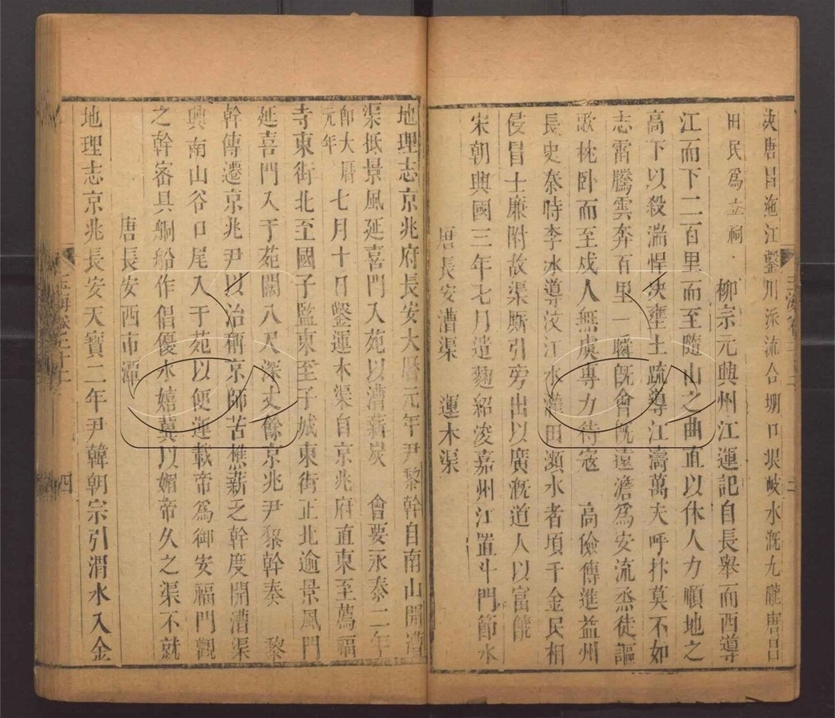 決唐昌沲江鑿川派流合堋口垠岐水漑九隴唐昌
田民爲立祠 柳宗元興州江運記自長舉而西導
江而下二百里而至隨山之曲直以休人力順地之
高下以殺湍悍決壅土疏導江濤萬夫呼抃莫不如
志雷騰雲奔百里一瞬旣會旣遠澹爲安流烝徒謳
歌枕卧而至戍人無虞專力待寇 高儉傳進益州
長史秦時李冰導汶江水灌田瀕水者頃千金民相
侵冒士廉附故渠厮引旁出以廣漑道人以富饒
宋朝興國三年七月遣 紹浚嘉州江置斗門節水
唐長安漕渠 運木渠
地理志京兆府長安大曆元年尹黎幹自南山開漕
渠抵景風延喜門入苑以漕薪炭 會要永泰二年
卽大曆元年 七月十日鑿運木渠自京兆府直東至薦福
寺東街北至國子監東至子城東街正北逾景風門
延喜門入于苑闊八尺深丈餘京兆尹黎幹奏 黎
幹傳遷京兆尹以治稱京師苦樵薪乏幹度開漕渠
興南山谷口尾入于苑以便運載帝爲御安福門觀
之幹密具舸船作倡優水嬉冀以媚帝久之渠不就
唐長安西市潭
地理志京兆長安天寶二年尹韓朝宗引渭水入金
四